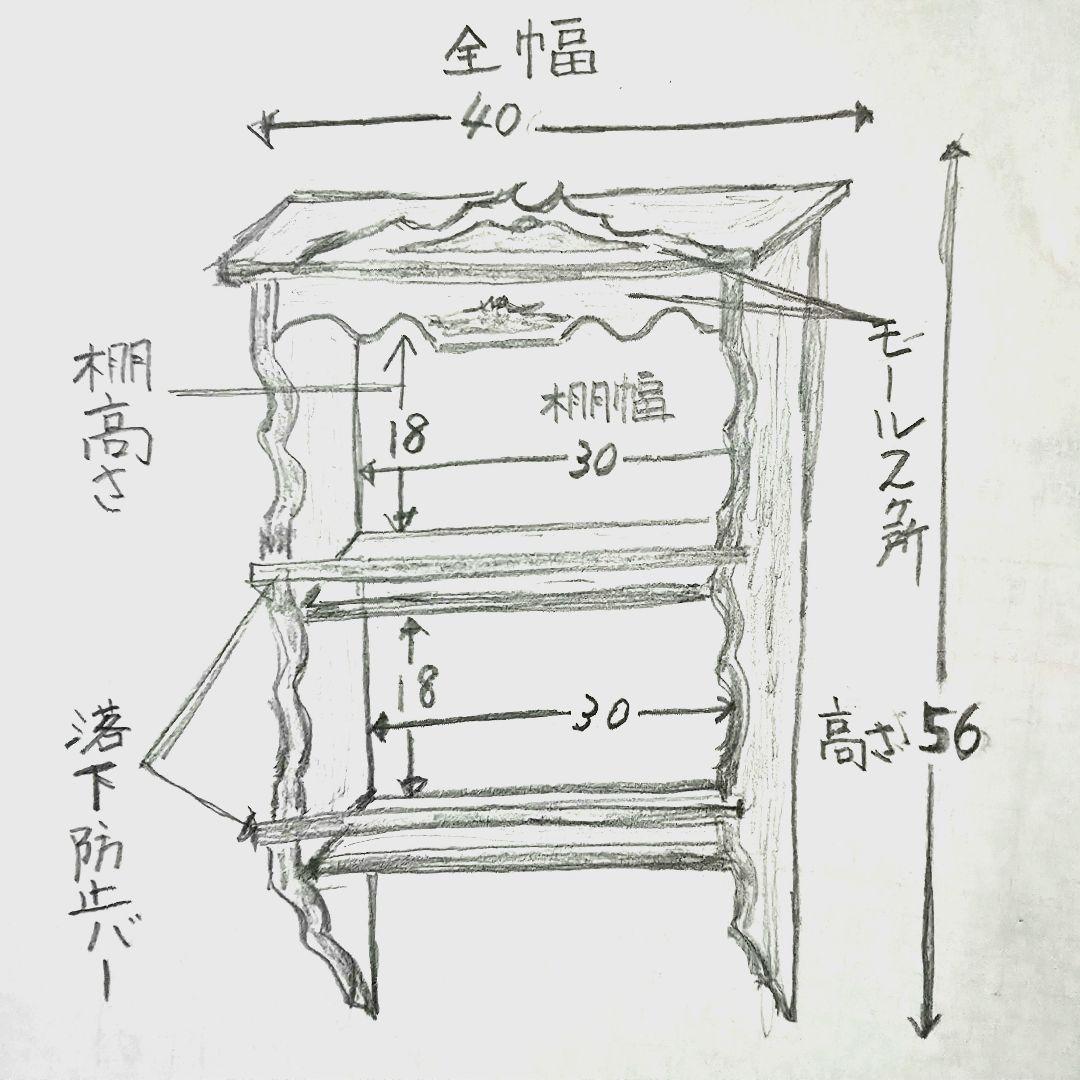 全幅
40
モール2ヶ所
棚高さ
18
棚幅
30
18
30
落下防止バー
高さ56